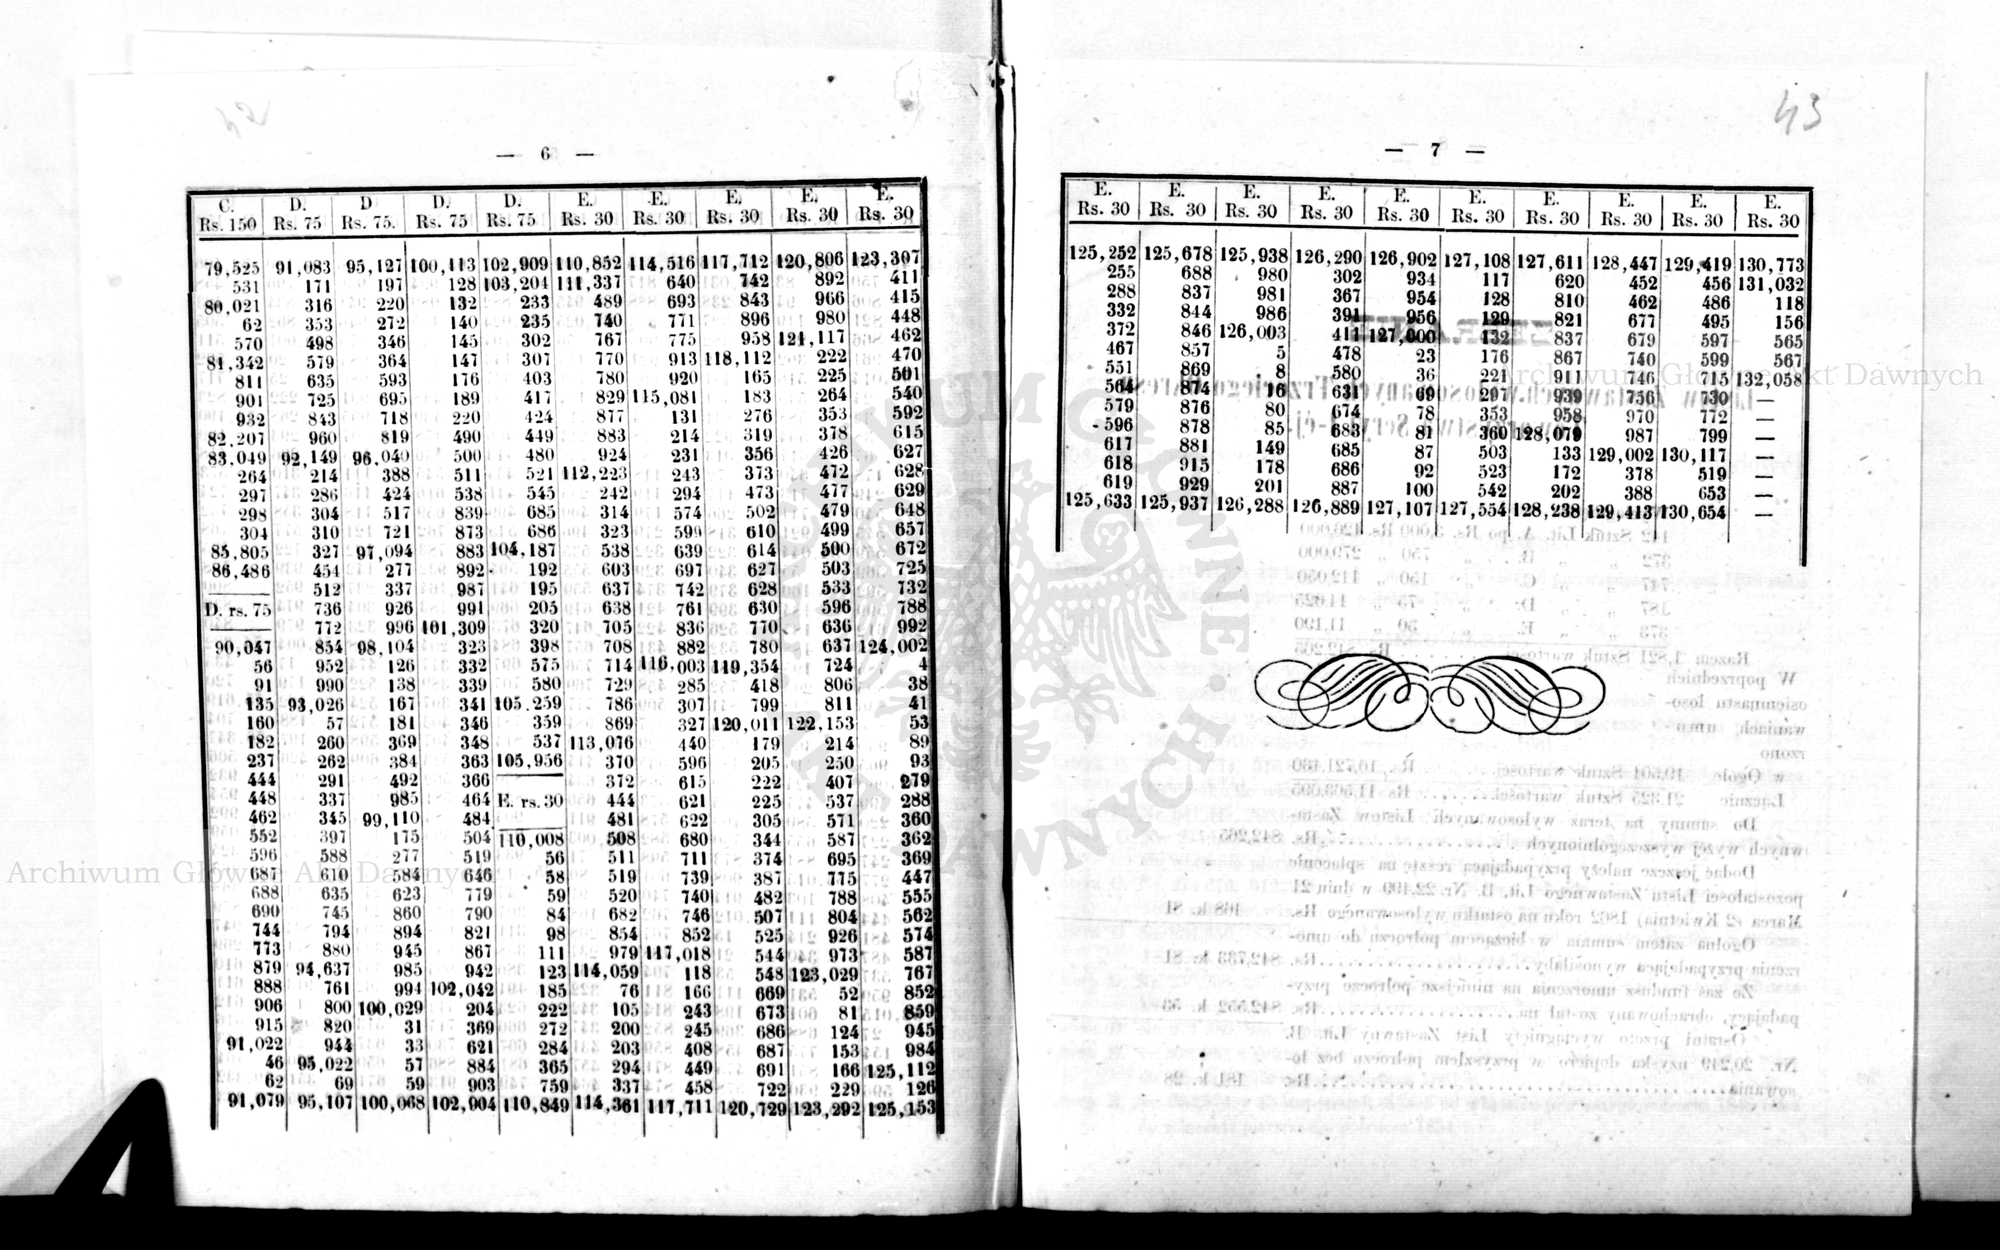 — 6 —
C. D. D D. D. E. E. E. E. E.
Rs. 150 Rs. 75 Rs. 75. Rs. 75 Rs. 75 Rs. 30 Rs. 30 Rs. 30 Rs. 30 Rs. 30
79,525 91,083 95,127 100,113 102,909 110,852 114,516 117,712 120,806 123,307
531 171 197 128 103,204 111,337 640 742 892 411
80,021 316 220 132 233 489 693 843 966 415
62 353 272 140 235 740 771 896 980 448
570 498 346 145 302 767 775 958 121,117 462
81,342 579 364 147 307 770 913 118,112 222 470
811 635 593 176 403 780 920 165 225 501
901 725 695 189 417 829 115,081 183 264 540
932 843 718 220 424 877 131 276 353 592
82,207 960 819 490 449 883 214 319 378 615
83,049 92,149 96,040 500 480 924 231 356 426 627
264 214 388 511 521 112,223 243 373 472 628
297 286 424 538 545 242 294 473 477 629
298 304 517 839 685 314 574 502 479 648
304 310 721 873 686 323 599 610 499 657
85,805 327 97,094 883 104,187 538 639 614 500 672
86,486 454 277 892 192 603 697 627 503 725
512 337 987 195 637 742 628 533 732
D. rs. 75 736 926 991 205 638 761 630 596 788
772 996 101,309 320 705 836 770 636 992
90,047 854 98,104 323 398 708 882 780 637 124,002
56 952 126 332 575 714 116,003 119,354 724 4
91 990 138 339 580 729 285 418 806 38
135 93,026 167 341 105.259 786 307 799 811 41
160 57 181 346 359 869 327 120,011 122,153 53
182 260 369 348 537 113,076 440 179 214 89
237 262 384 363 105,956 370 596 205 250 93
444 291 492 366 372 615 222 407 279
448 337 985 464 E. rs. 30 444 621 225 537 288
462 345 99,110 484 481 622 305 571 360
552 397 175 504 110,008 508 680 344 587 362
596 588 277 519 56 511 711 374 695 369
687 610 584 646 58 519 739 387 775 447
688 635 623 779 59 520 740 482 788 555
690 745 860 790 84 682 746 507 804 562
744 794 894 821 98 854 852 525 926 574
773 880 945 867 111 979 117,018 544 973 587
879 94,637 985 942 123 114,059 118 548 123,029 767
888 761 994 102,042 185 76 166 669 52 852
906 800 100,029 204 222 105 243 673 81 859
915 820 31 369 272 200 245 686 124 945
91,022 944 33 621 284 203 408 687 153 984
46 95,022 57 884 365 294 449 691 166 125,112
62 69 59 903 759 337 458 722 229 126
91,079 95,107 100,068 102,904 110,849 114,361 117,711 120,729 123,292 125,153
43
— 7 —
E. E. E. E. E. E. E. E. E. E.
Rs. 30 Rs. 30 Rs. 30 Rs. 30 Rs. 30 Rs. 30 Rs. 30 Rs. 30 Rs. 30 Rs. 30
125,252 125,678 125,938 126,290 126,902 127,108 127,611 128,447 129,419 130,773
255 688 980 302 934 117 620 452 456 131,032
288 837 981 367 954 128 810 462 486 118
332 844 986 391 956 129 821 677 495 156
372 846 126,003 411 127,000 132 837 679 597 565
467 857 5 478 23 176 867 740 599 567
551 869 8 580 36 221 911 746 715 132,058
564 874 16 631 69 297 939 756 730 —
579 876 80 674 78 353 958 970 772 —
596 878 85 683 81 360 128,079 987 799 —
617 881 149 685 87 503 133 129,002 130,117 —
618 915 178 686 92 523 172 378 519 —
619 929 201 887 100 542 202 388 653 —
125,633 125,937 126,288 126,889 127,107 127,554 128,238 129,413 130,654 —
Archiwum Główne Akt Dawnych
Archiwum Główne Akt Dawnych
ARCHIWUM GŁÓWNE AKT DAWNYCH